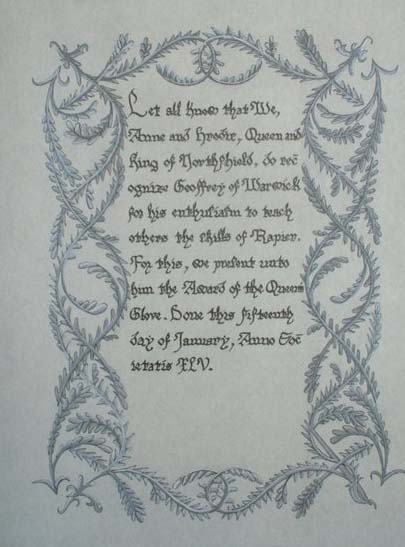 Let all know that We,
Anne and Hrodir, Queen and
King of Northshield, do rec
ognize Geoffrey of Warwick
for his enthusiasm to teach
others the skills of Rapier.
For this, we present unto
him the Award of the Queens
Glove. Done this fifteenth
day of January, Anno Soc
ietatis XLV.